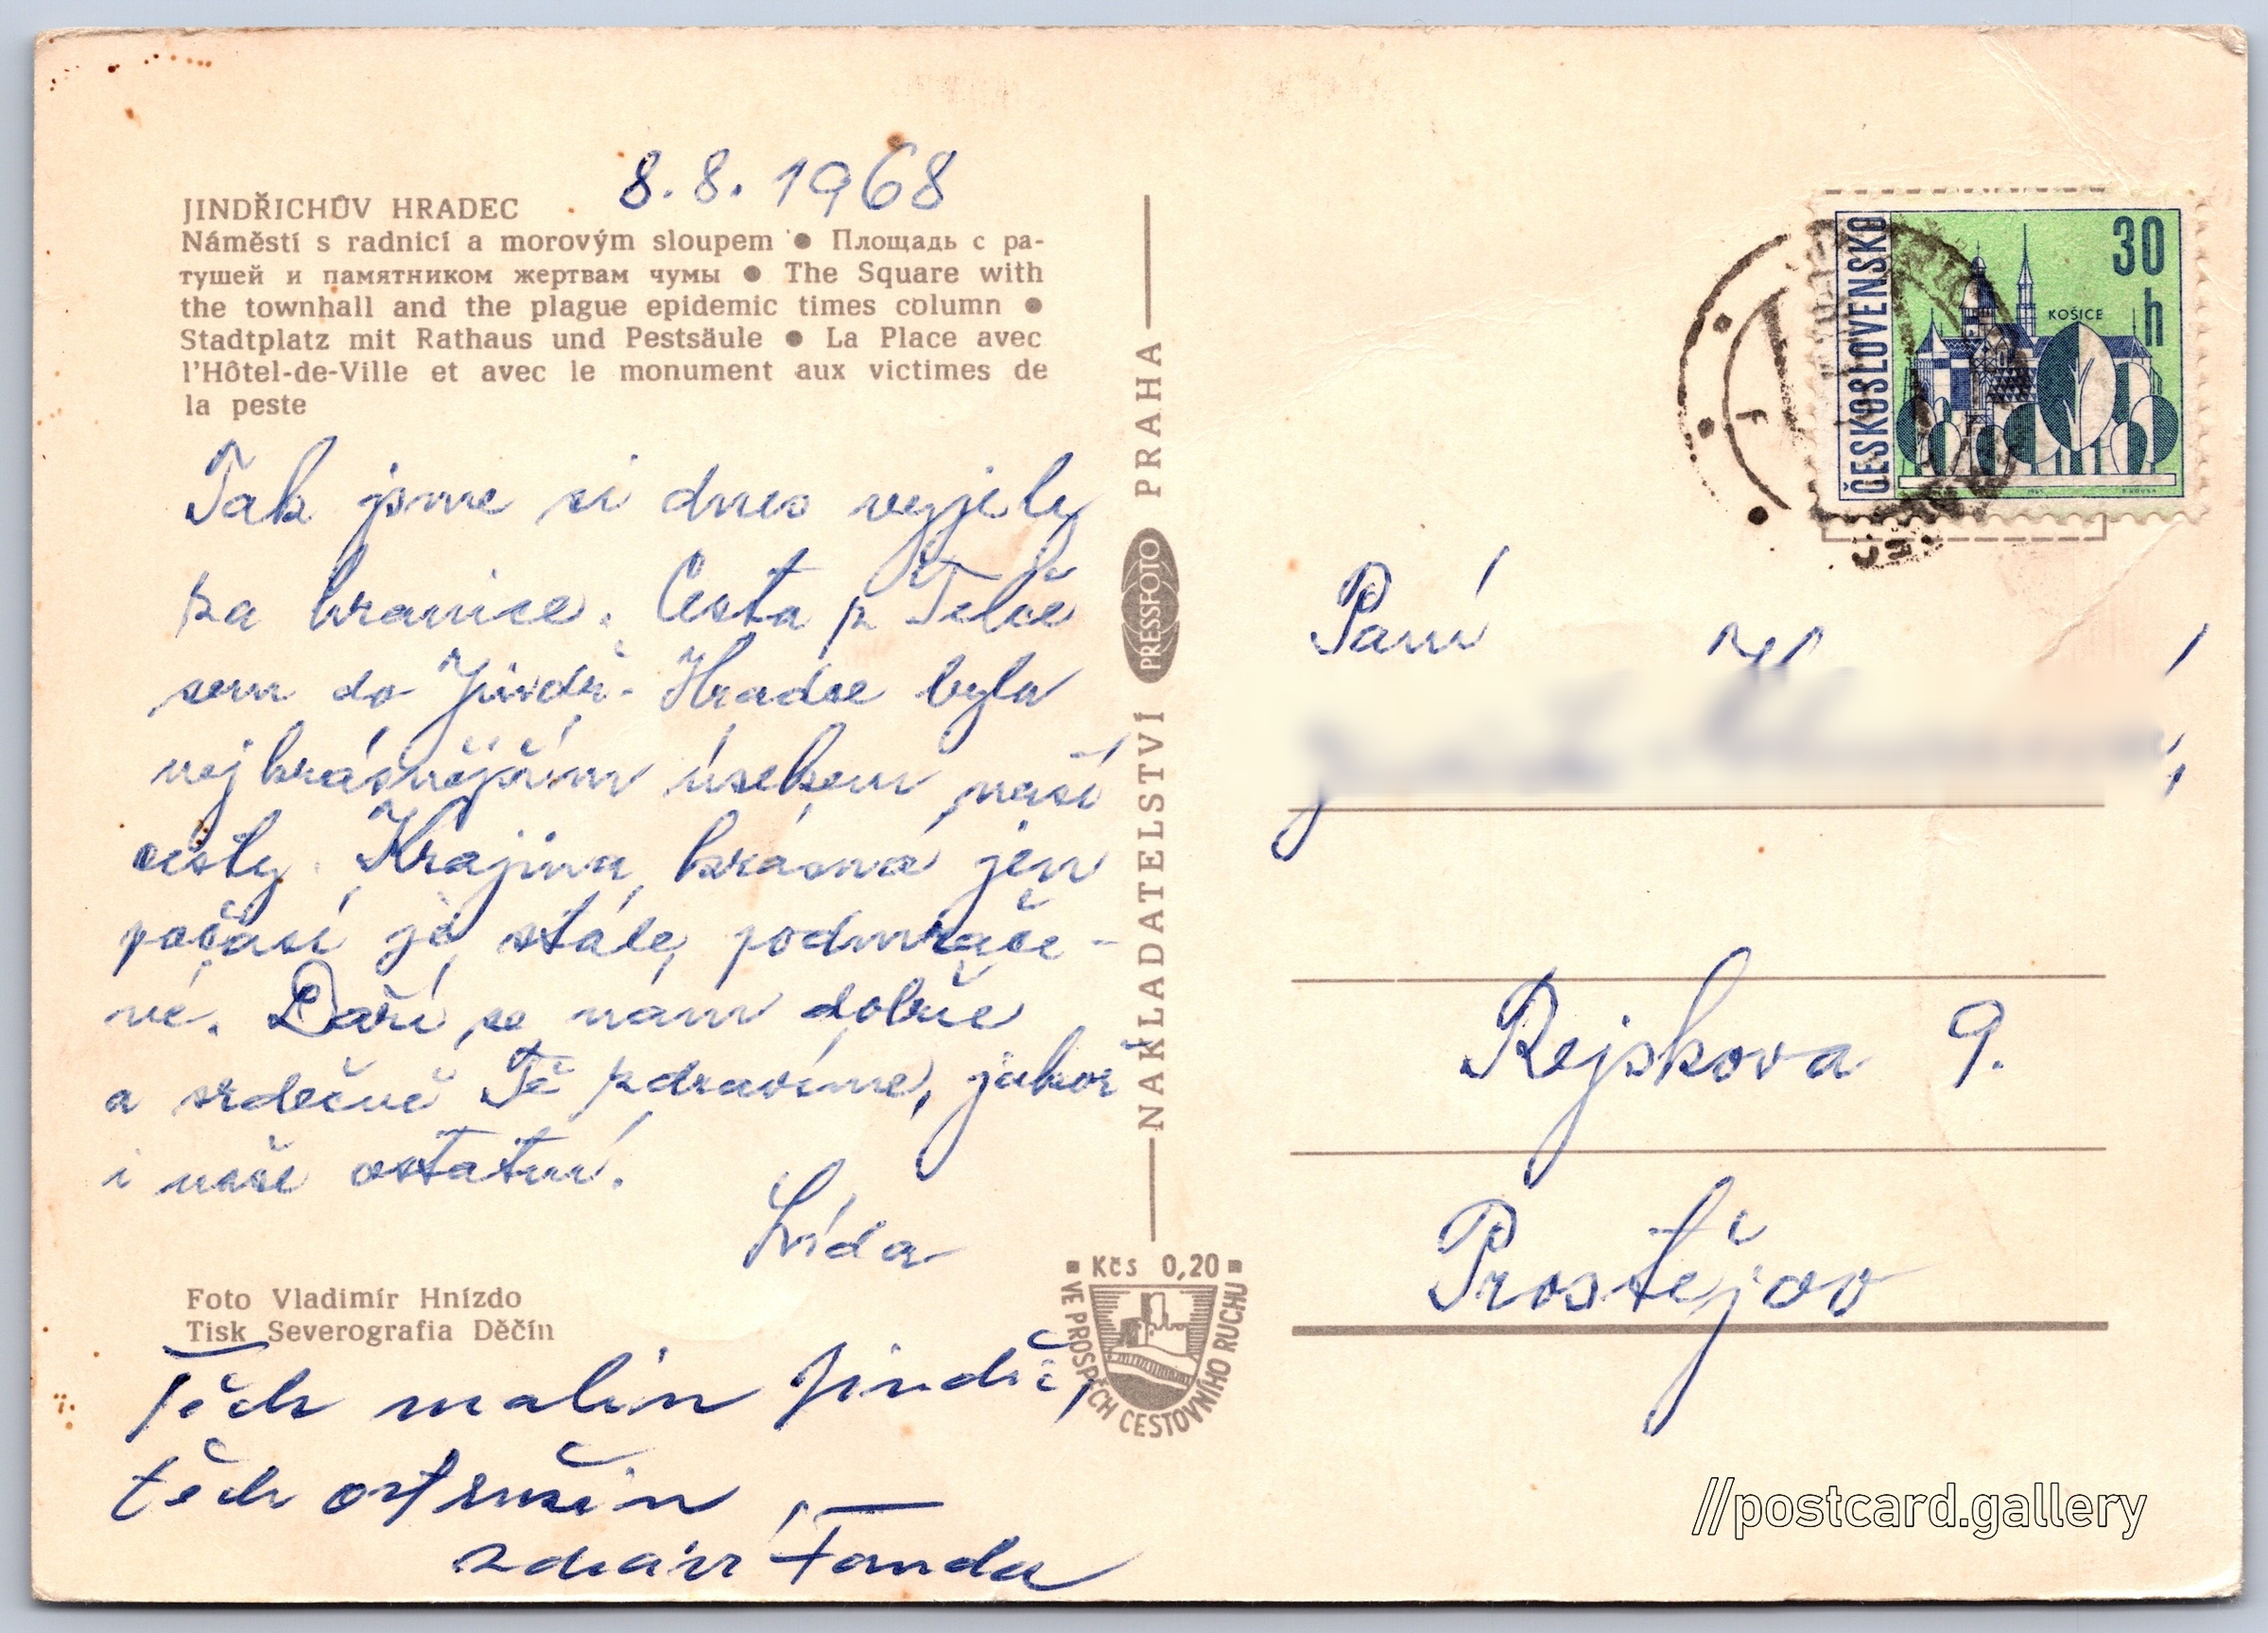 8. 8. 1968
JINDŘICHŮV HRADEC
Náměstí s radnicí a morovým sloupem ● Площадь с ра-
тушей и памятником жертвам чумы ● The Square with
the townhall and the plague epidemic times column ●
Stadtplatz mit Rathaus und Pestsäule ● La Place avec
l'Hôtel-de-Ville et avec le monument aux victimes de
la peste
Tak jsme si dnes vyjely
za hranice. Cesta z Telče
sem do Jindř. Hradce byla
nejkrásnějším úsekem naší
cesty. Krajina krásná jen
počasí je stále podmrače-
né. Daří se nám dobře
a srdečně Tě zdravíme, jakož
i naše ostatní.
Lída
Foto Vladimír Hnízdo
Tisk Severografia Děčín
Těch malin Jindři,
těch ostružin
zdraví Fanda
NAKLADATELSTVÍ PRESSFOTO PRAHA
Kčs 0,20
VE PROSPĚCH CESTOVNÍHO RUCHU
ČESKOSLOVENSKO
30
h
KOŠICE
Paní
Rejskova 9.
Prostějov
//postcard.gallery